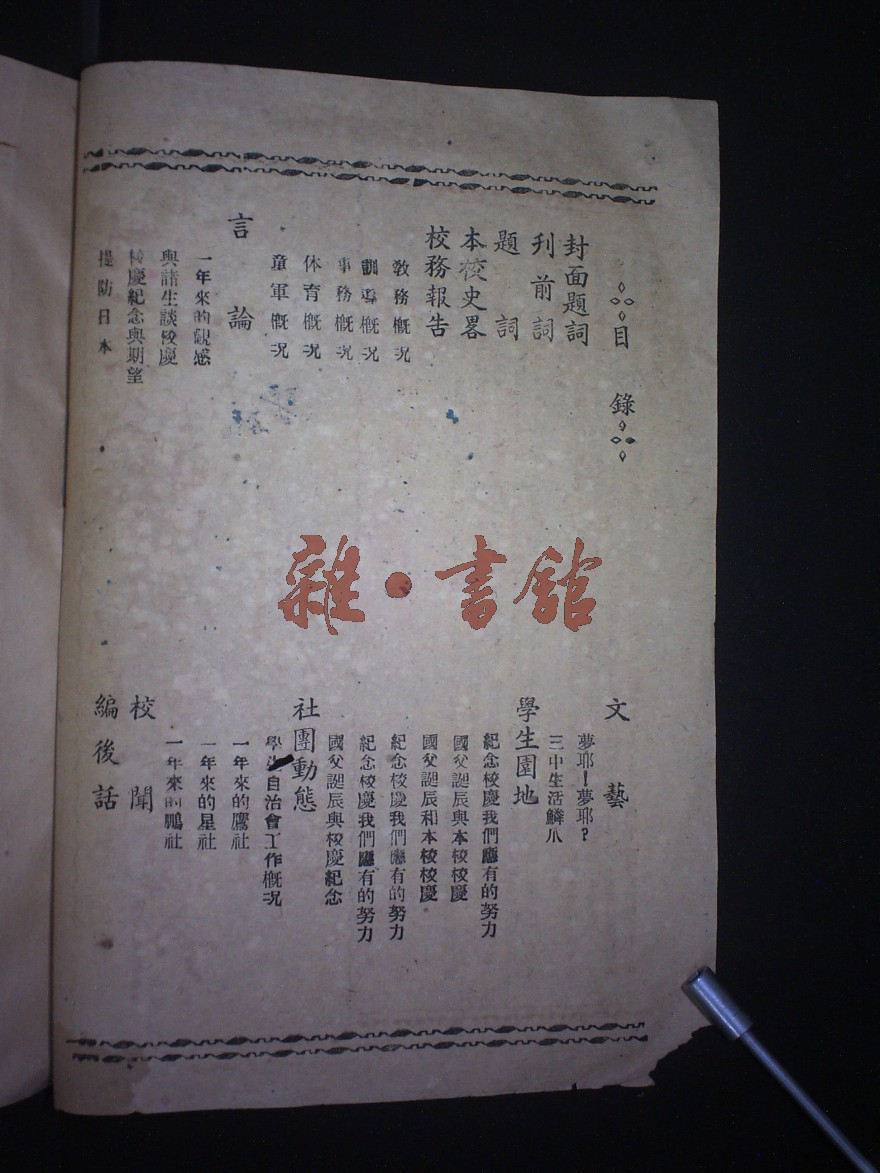 目錄
封面題詞
刋前詞
題詞
本校史畧
校務報告
教務概况
訓導概况
事務概况
体育概况
童軍概况
言論
一年來的觀感
與諸生談校慶
校慶紀念與期望
提防日本
文藝
夢耶！夢耶？
三中生活鱗爪
學生園地
紀念校慶我們應有的努力
國父誕辰與本校校慶
國父誕辰和本校校慶
紀念校慶我們應有的努力
紀念校慶我們應有的努力
國父誕辰與校慶紀念
社團動態
學生自治會工作概况
一年來的鷹社
一年來的星社
一年來的鵬社
校聞
編後話
雜·書館